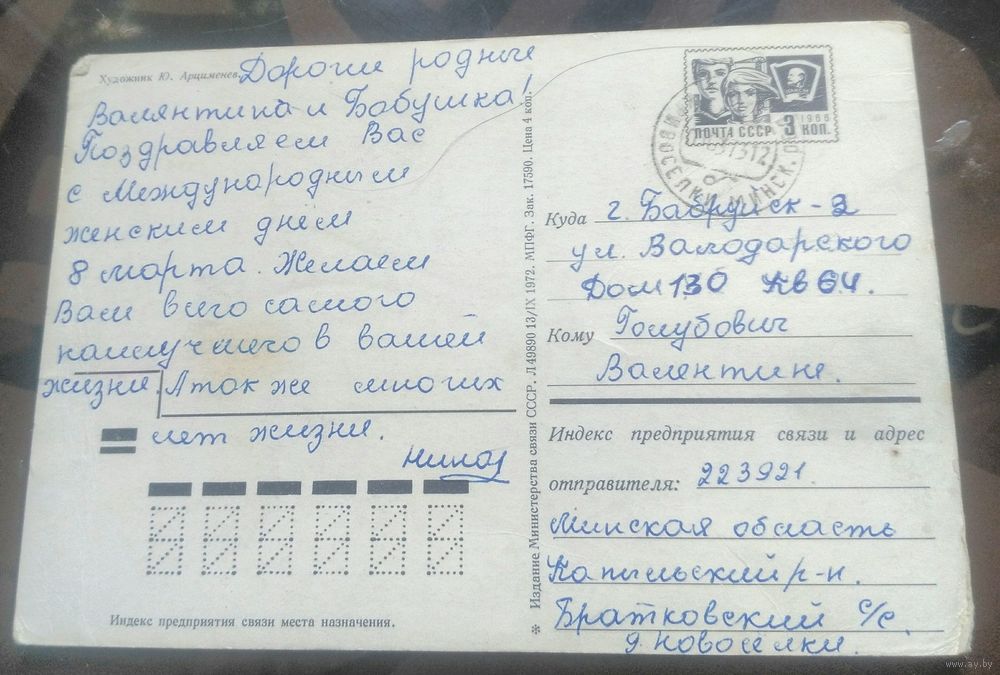 Художник Ю. Арцименев.
Дорогие родные
Валянтина и Бабушка!
Поздравляем Вас
с Международным
женским днём
8 марта. Желаем
Вам всего самого
наилучшего в вашей
жизни. А так же многих
лет жизни.
Индекс предприятия связи места назначения.
* Издание Министерства связи СССР. Л49890 13/IX 1972. МПФГ. Зак. 17590. Цена 4 коп.
ПОЧТА СССР 3 КОП. 1966
Куда г. Бабруйск-2
ул. Валодарского
Дом 130 кв 64.
Кому Голубович
Валентине.
Индекс предприятия связи и адрес
отправителя: 223921.
Минская область
Капыльский р-н.
Братковский с/с.
д. Новоселки.
www.ay.by